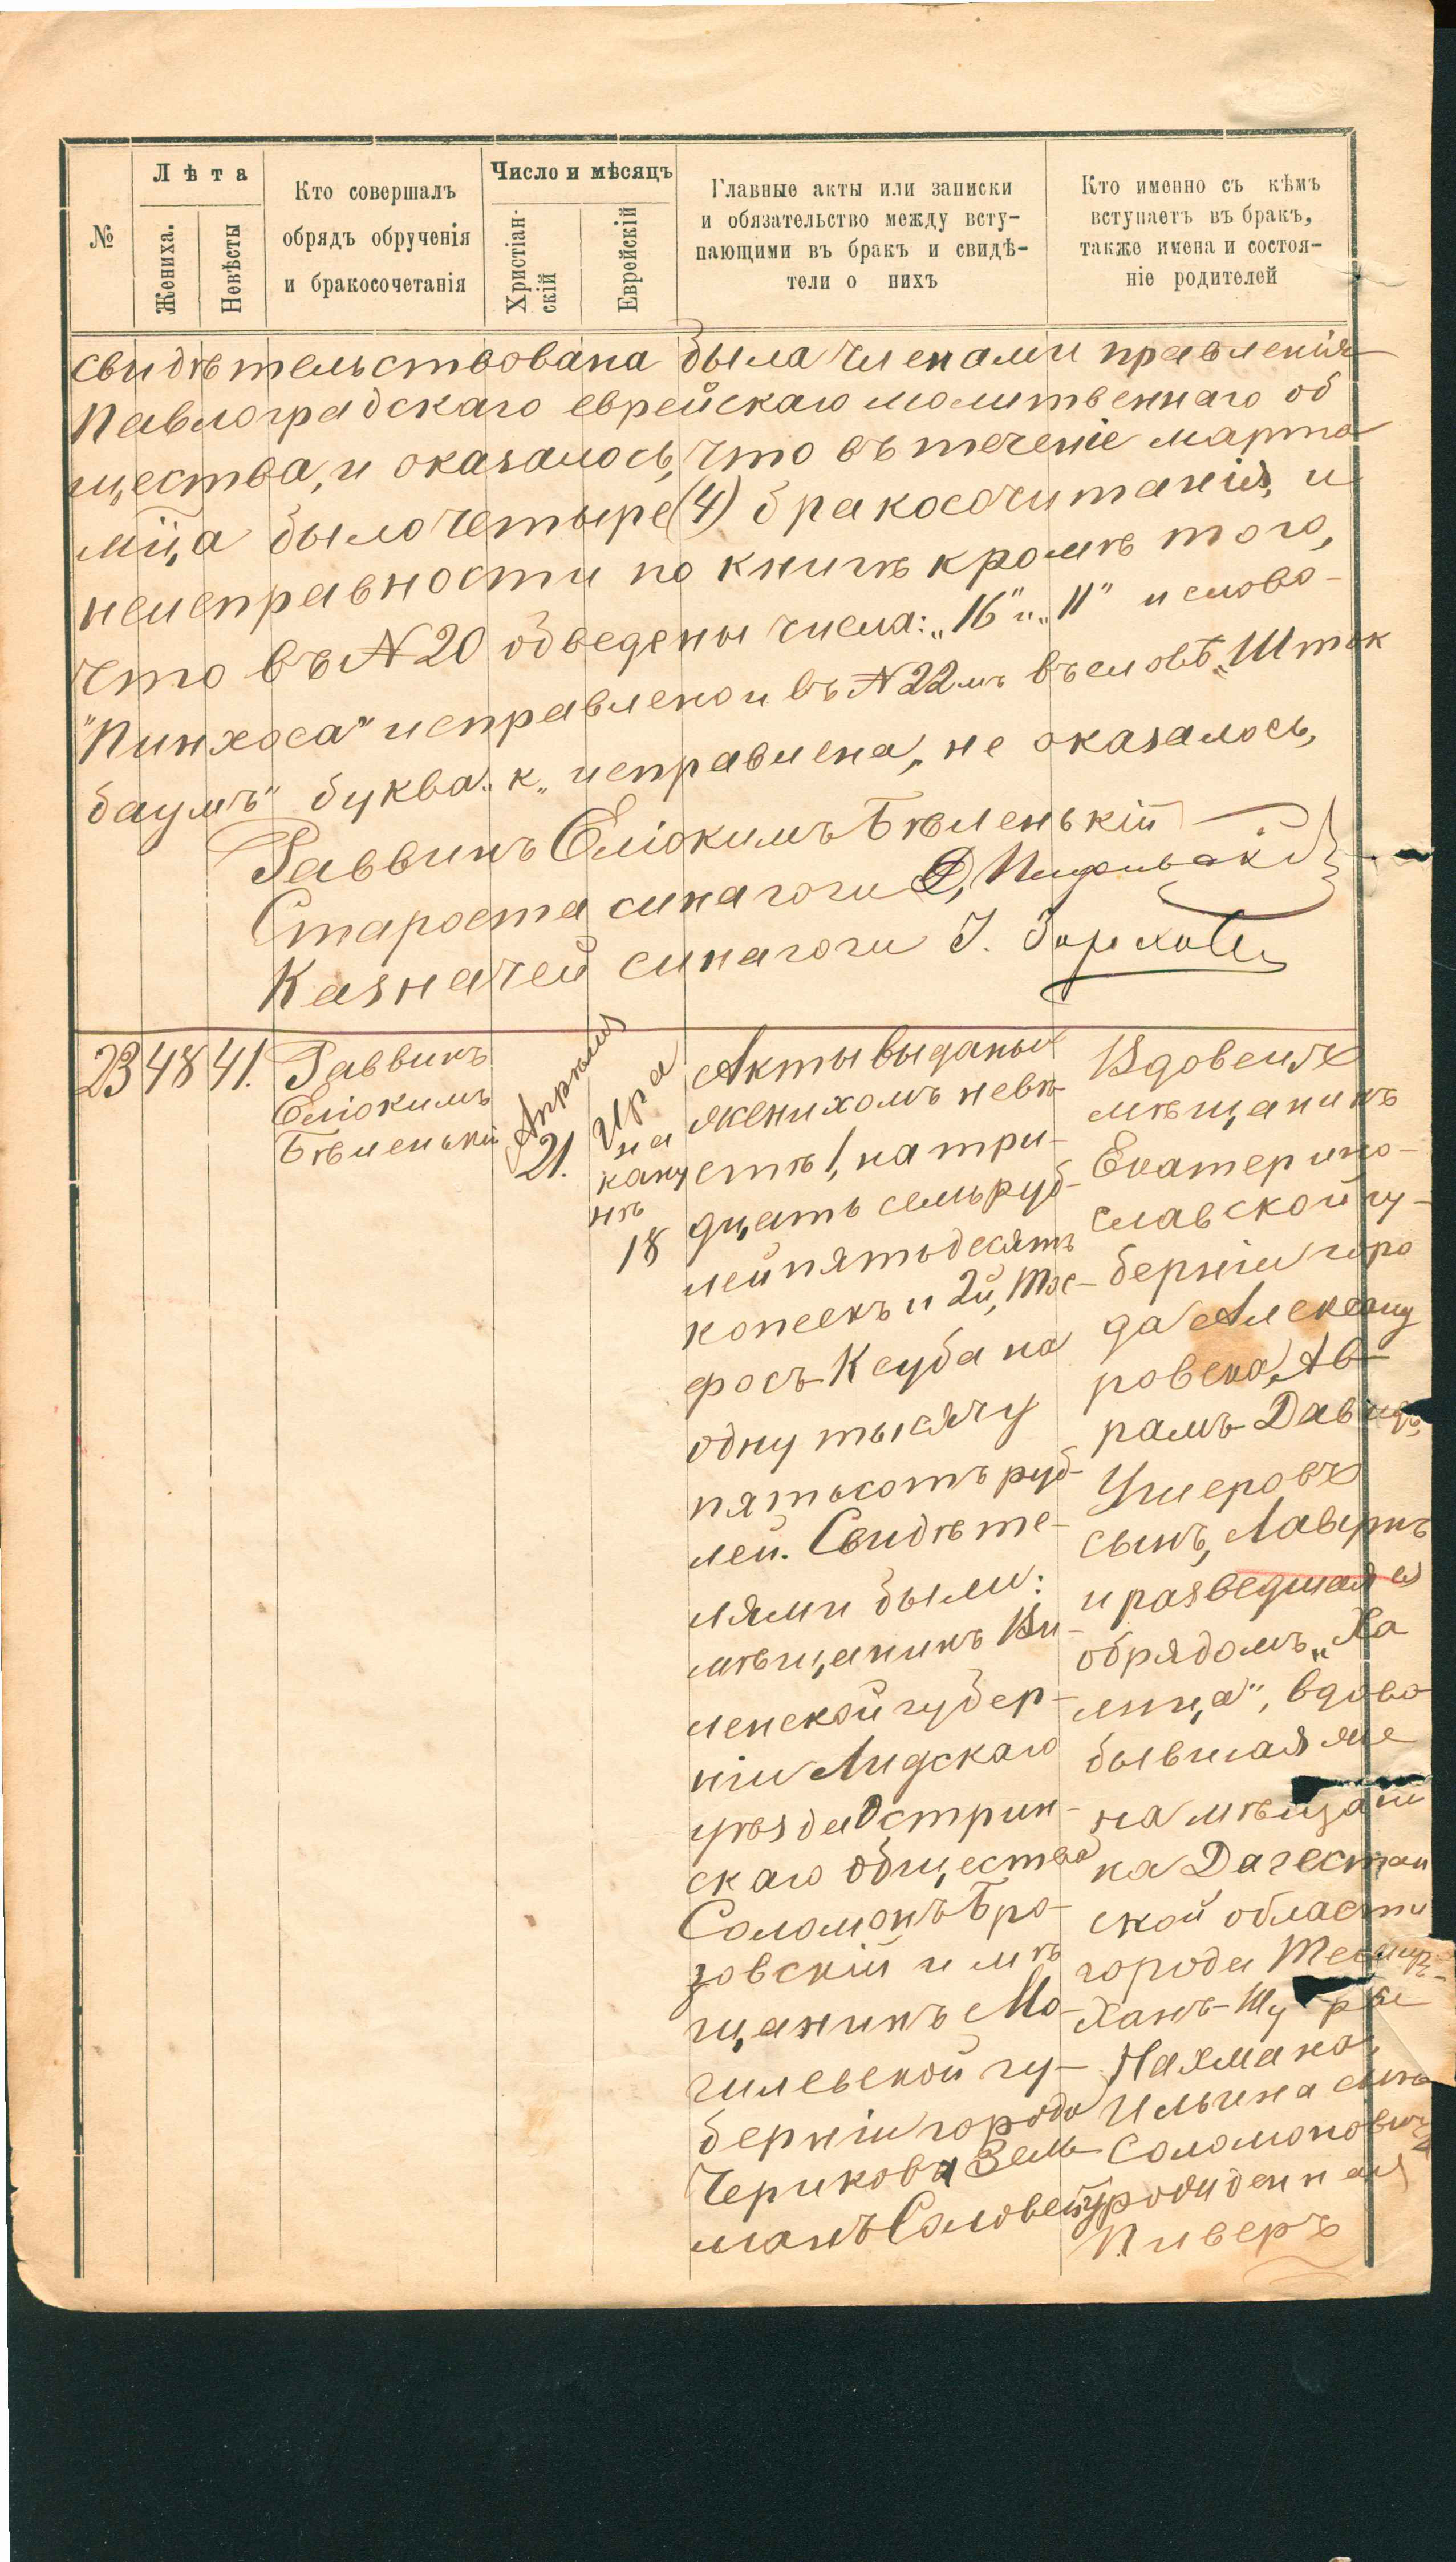 №
Лѣта
Жениха.
Невѣсты
Кто совершалъ
обрядъ обрученія
и бракосочетанія
Число и мѣсяцъ
Христіан-
скій
Еврейскій
Главные акты или записки
и обязательство между всту-
пающими въ бракъ и свидѣ-
тели о нихъ
Кто именно съ кѣмъ
вступаетъ въ бракъ,
также имена и состоя-
ніе родителей
свидѣтельствована была членами правленія
Павлоградскаго еврейскаго молитвеннаго об
щества, и оказалось, что въ теченіе марта
мѣ,а было четыре (4) бракосочитанія, и
неисправности по книгѣ кромѣ того,
что въ №20 обведены числа: „16" и „11" и слово-
"Пинхоса" исправлено и въ №22мъ въ словѣ „Шток
баумъ" буква „к„ исправлена, не оказалось,
Раввинъ Еліокимъ Бѣленькій
Староста синагоги
Казначей синагоги I.
23
48
41.
Раввинъ
Еліокимъ
Бѣленькій
Апрѣля
21.
Ира
на
кану
нѣ
18
Акты выданы
женихомъ невѣ-
стѣ 1, на три-
дцать семь руб-
лей пятьдесятъ
копеекъ и 2й, Тос-
фосъ Ксуба на
одну тысячу
пятьсотъ руб-
лей. Свидѣте-
лями были:
мѣщанинъ Ви-
ленской губер-
ніи Лидскаго
уѣзда Острин-
скаго общества
Соломонъ Бро-
зовскій и мѣ
щанинъ Мо-
гилевской гу-
берніи города
Черикова Зель-
манъ Соловей
Вдовецъ
мѣщанинъ
Екатерино-
славской гу-
берніи горо
да Александ
ровска, Ав-
рамъ-Давидъ
Ушеровъ
сынъ, Лавринъ
и разведшаяся
обрядомъ „Ха
лица", вдова
бывшая же
на мѣщани
на Дагестан
ской области
города Темиръ-
Ханъ-Шуры
Нахмана
Ильина сына
Соломоновича
урожденная
Пиверъ